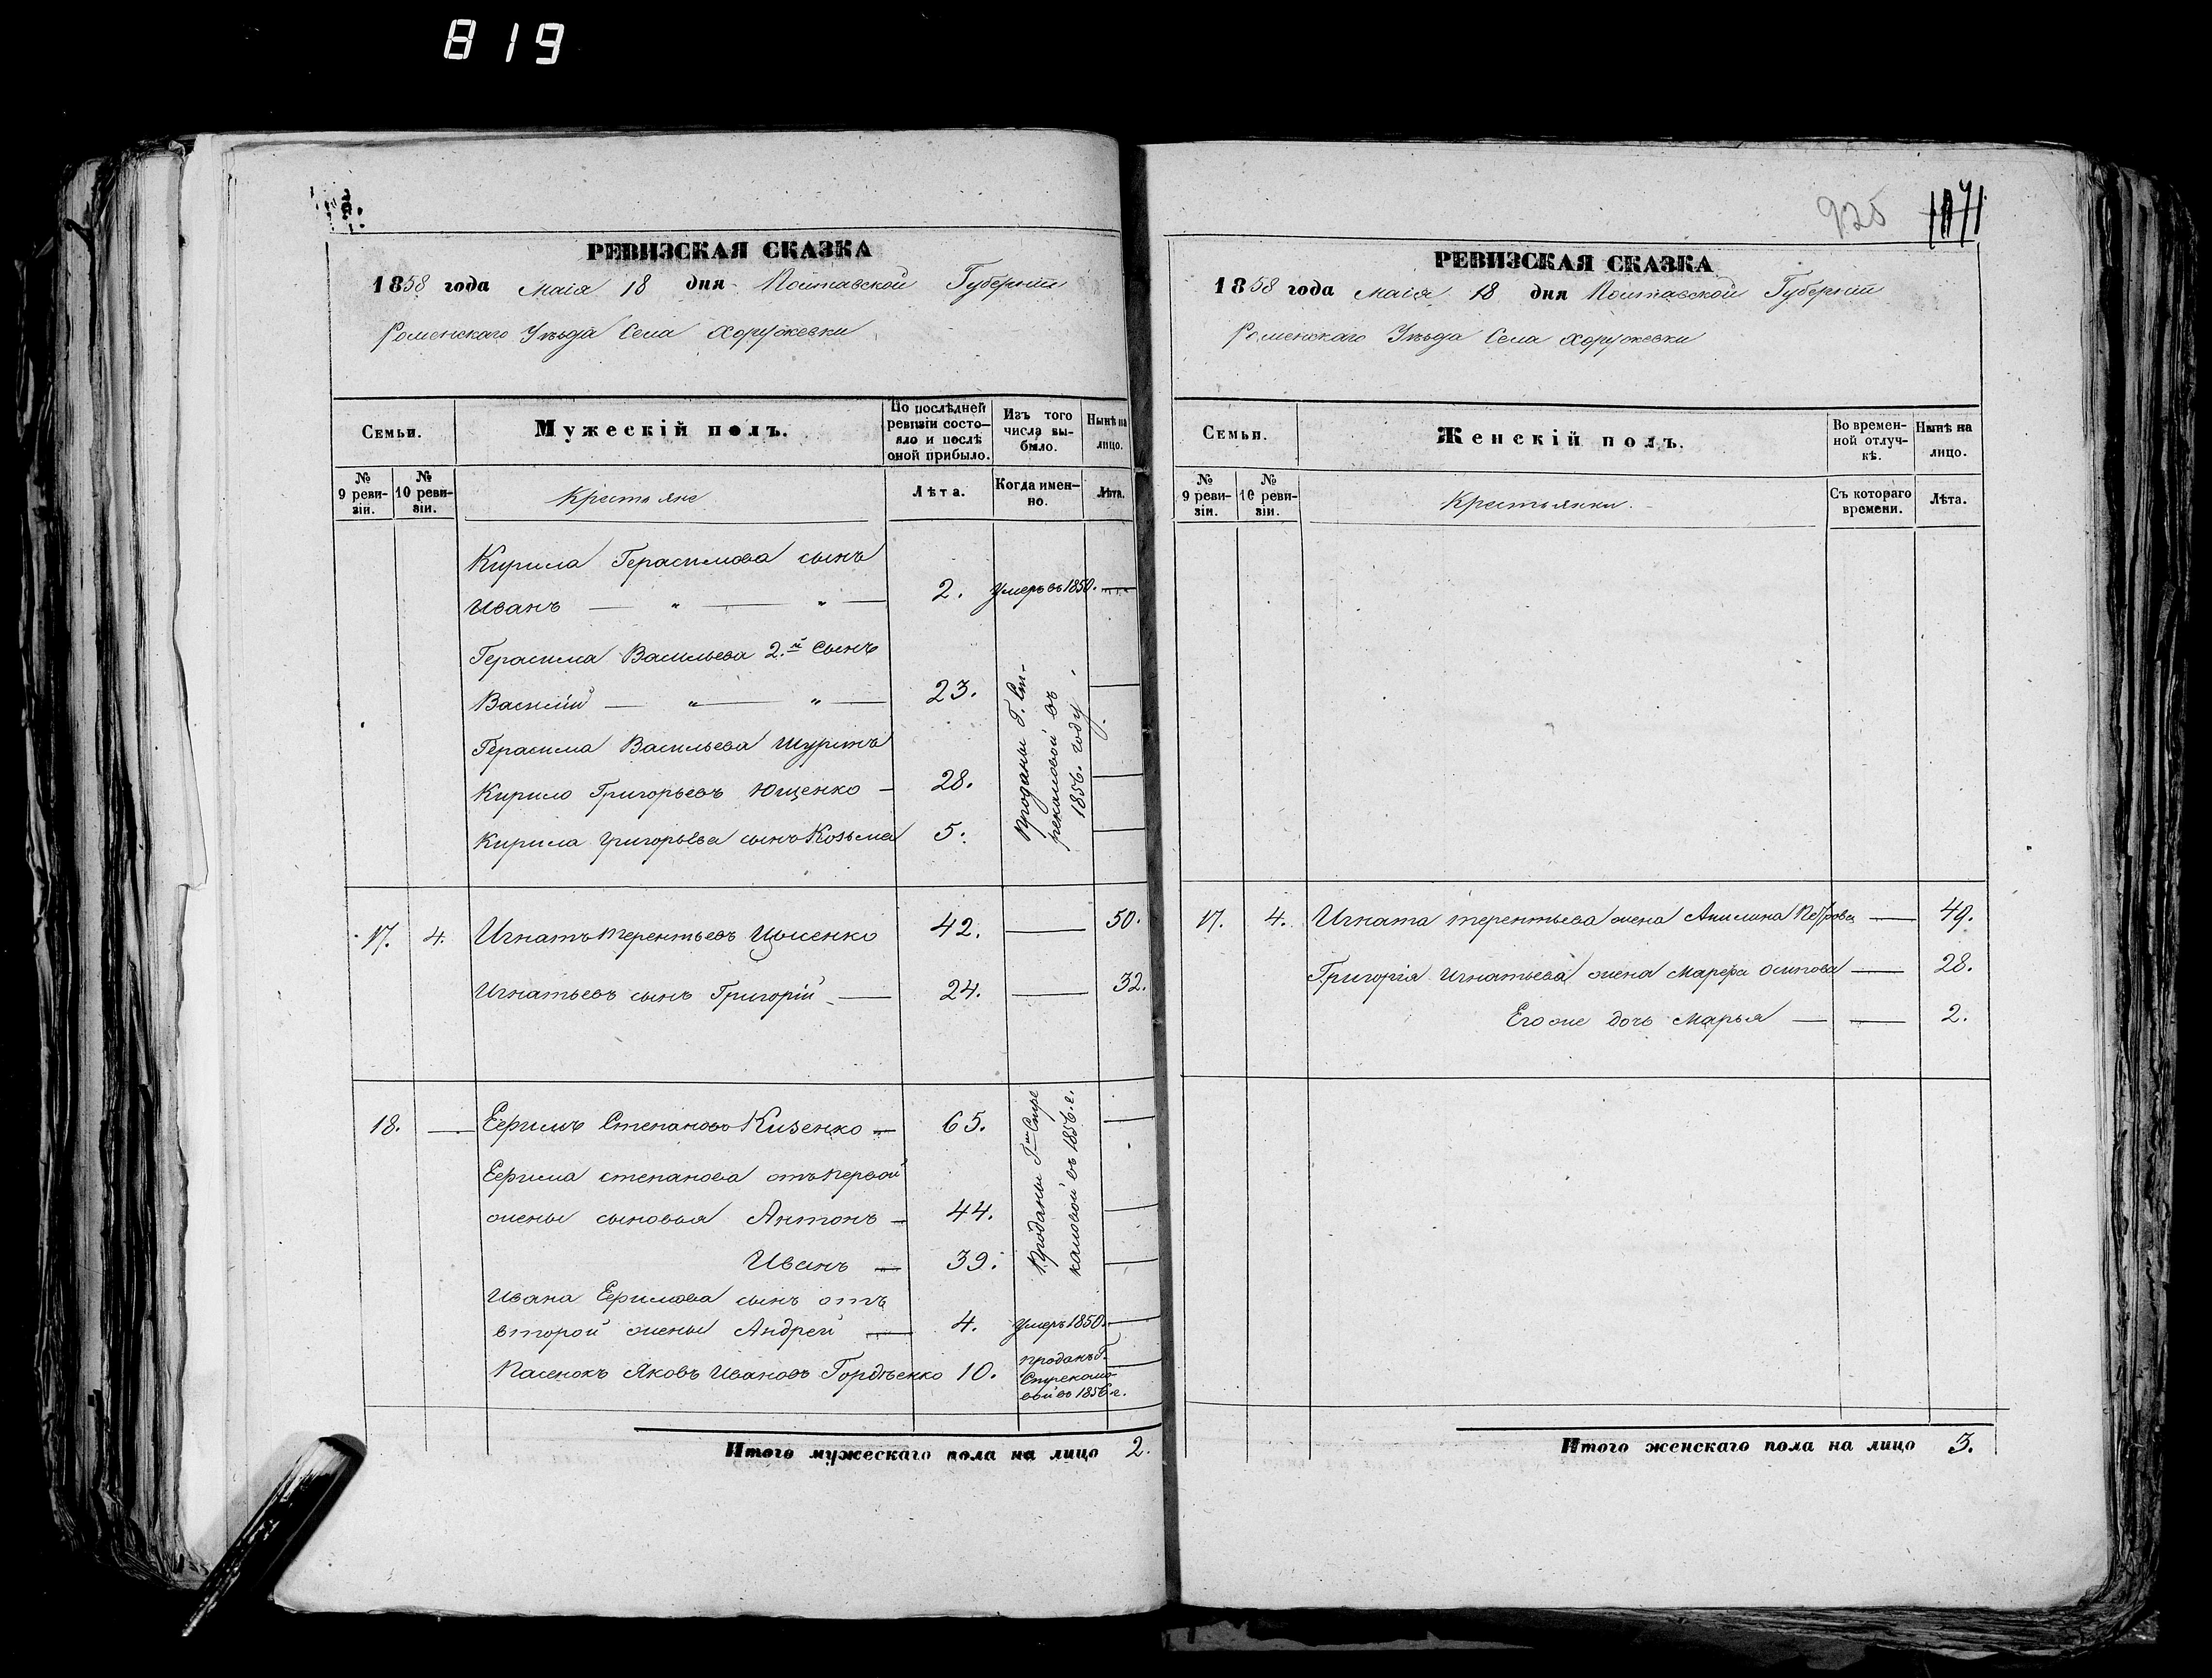 819
РЕВИЗСКАЯ СКАЗКА
1858 года Маія 18 дня Полтавской Губерніи
Роменскаго Уѣзда Села Хоружевки
Семьи.
Мужескій полъ.
По послѣдней ревизіи состояло и послѣ оной прибыло.
Изъ того числа выбыло.
Нынѣ на лицо.
№ 9 ревизіи.
№ 10 ревизіи.
Крестьяне
Лѣта.
Когда именно.
Лѣта.
Кирила Герасимова сынъ
Иванъ — „ — „ — 2. Умеръ въ 1850. —
Герасима Васильева 2.й Сынъ
Василій — „ — „ — 23. —
Герасима Васильева Шуринъ
Кирило Григорьевъ Ющенко — 28. —
Кирила Григорьева сынъ Козьма 5. —
Проданы Г. Ст-
рекаловой въ
1856. году.
17. 4. Игнатъ Терентьевъ 42. — 50.
Игнатьевъ сынъ Григорій — 24. — 32.
18. — Ефимъ Степановъ Кизенко — 65. —
Ефима степанова отъ первой
жены сыновья Антонъ — 44. —
Иванъ — 39. —
Проданы Г-жѣ Стре
каловой въ 1856. г.
Ивана Ефимова сынъ отъ
второй жены Андрей — 4. Умеръ 1850. —
Пасенокъ Яковъ Ивановъ Гордѣенко 10. проданъ Г. —
Стрекало-
вой въ 1856 г.
Итого мужескаго пола на лицо 2.
925
РЕВИЗСКАЯ СКАЗКА
1858 года Маія 18 дня Полтавской Губерніи
Роменскаго Уѣзда Села Хоружевки
Семьи.
Женскій полъ.
Во временной отлучкѣ.
Нынѣ на лицо.
№ 9 ревизіи.
№ 10 ревизіи.
Крестьянки.
Съ котораго времени.
Лѣта.
17. 4. Игната терентьева жена Акилина Петрова — 49.
Григорія Игнатьева жена Марфа Осипова — 28.
Его же дочь Марья — — 2.
Итого женскаго пола на лицо 3.